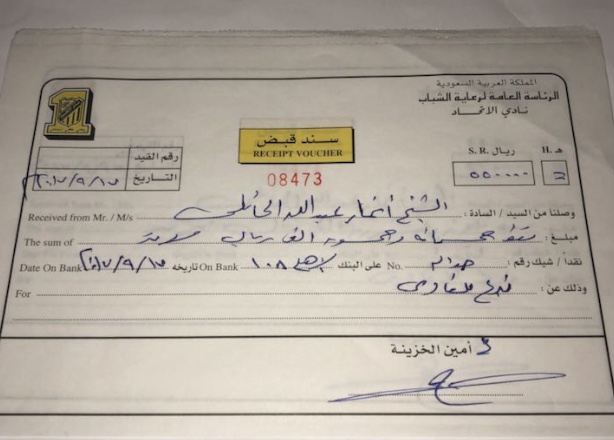 المملكة العربية السعودية
الرئاسة العامة لرعاية الشباب
نادي الاتحاد
سند قبض
RECEIPT VOUCHER
08473
رقم القيد
التاريخ ٢٠١٧/٩/١٥
ريال S. R. هـ H.
٥٥٠٠٠٠
وصلنا من السيد / السادة : الشيخ أنمار عبدالله الحائلي Received from Mr. / M/s
مبلغ : فقط خمسمائة وخمسون الف ريال The sum of
نقداً / شيك رقم : No. على البنك الاهلي On Bank تاريخه ٢٠١٧/٩/١٥ Date On Bank
وذلك عن : For
أمين الخزينة